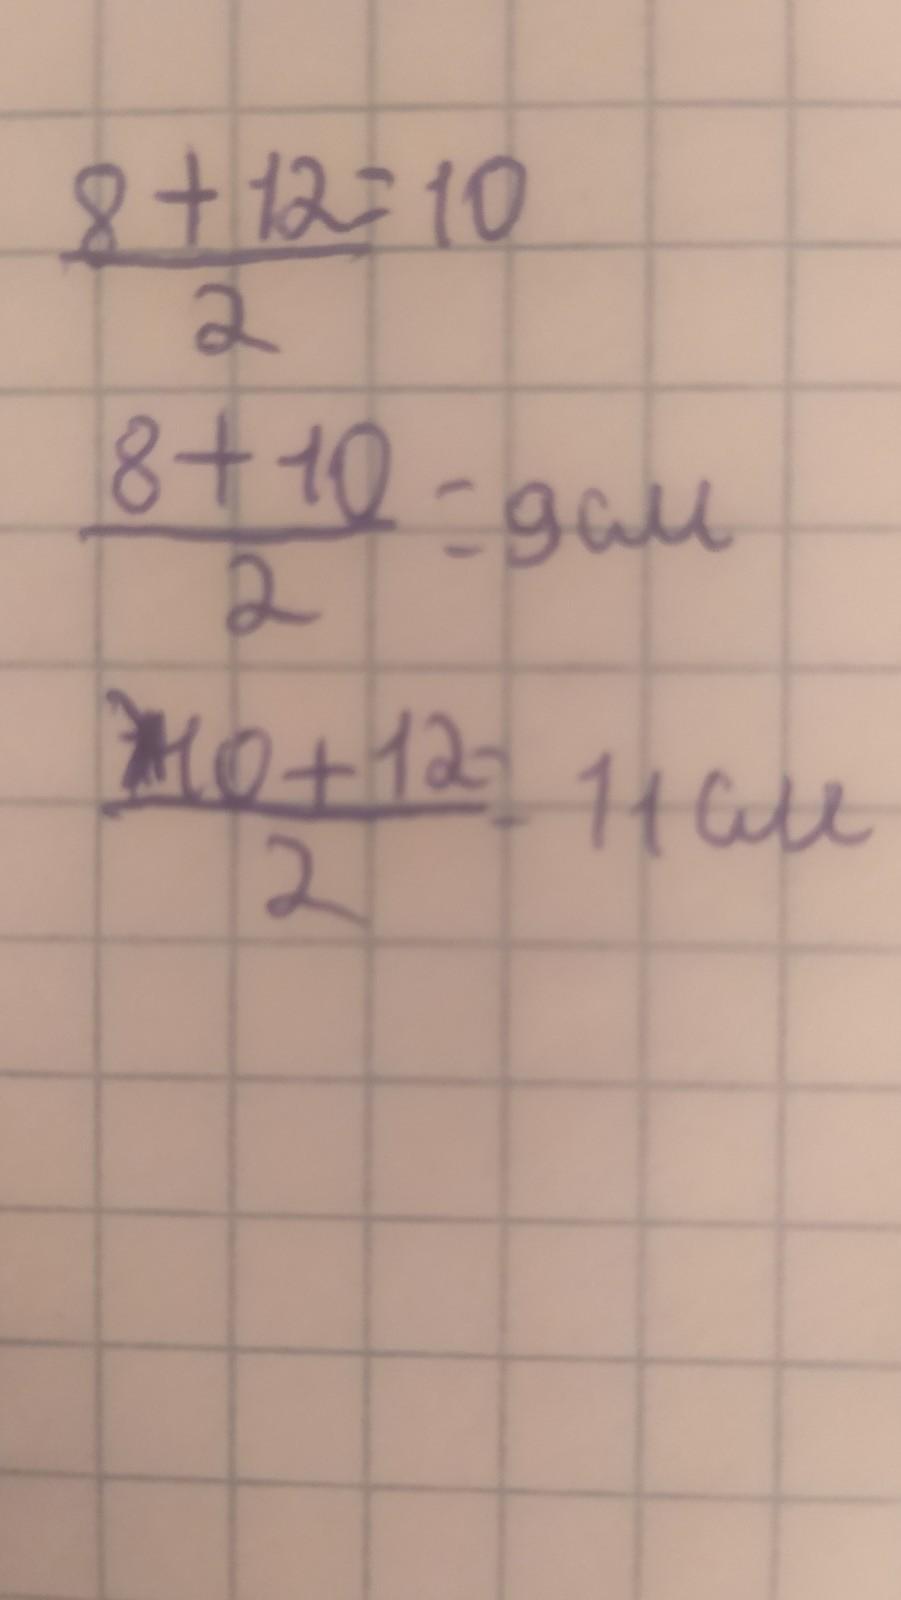 8 + 12 = 10
2
8 + 10 = 9 см
2
10 + 12 = 11 см
2